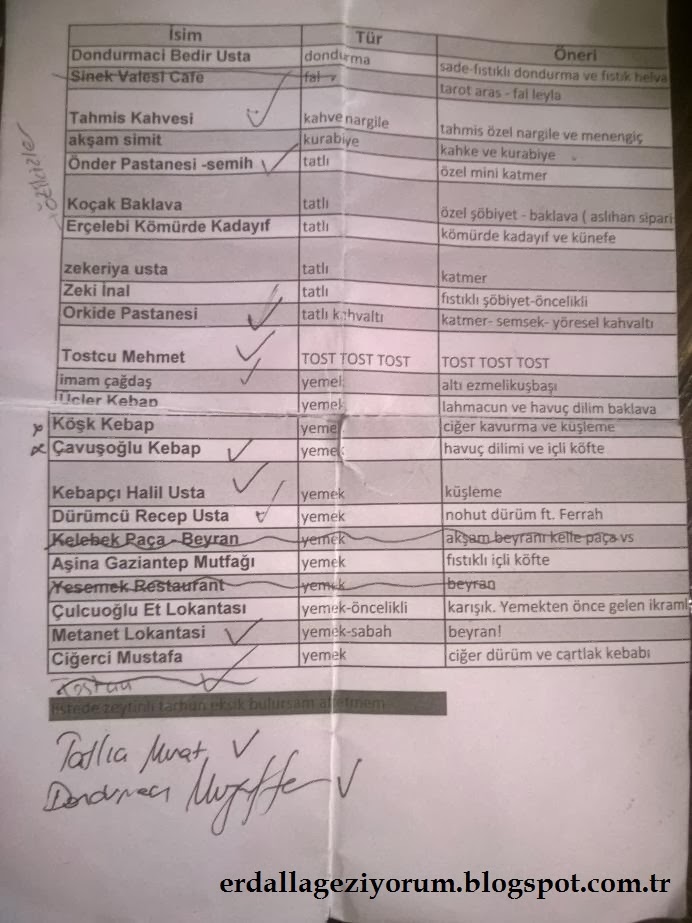 İsim Tür Öneri
Dondurmaci Bedir Usta dondurma sade-fıstıklı dondurma ve fıstık helva
Sinek Valesi Cafe fal tarot aras - fal leyla
Tahmis Kahvesi kahve nargile tahmis özel nargile ve menengiç
akşam simit kurabiye kahke ve kurabiye
Önder Pastanesi -semih tatlı özel mini katmer
Koçak Baklava tatlı özel şöbiyet - baklava ( aslıhan sipari
Erçelebi Kömürde Kadayıf tatlı kömürde kadayıf ve künefe
zekeriya usta tatlı katmer
Zeki İnal tatlı fıstıklı şöbiyet-öncelikli
Orkide Pastanesi tatlı kahvaltı katmer- semsek- yöresel kahvaltı
Tostcu Mehmet TOST TOST TOST TOST TOST TOST
imam çağdaş yemek altı ezmelikuşbaşı
Üçler Kebap yemek lahmacun ve havuç dilim baklava
Köşk Kebap yemek ciğer kavurma ve küşleme
Çavuşoğlu Kebap yemek havuç dilimi ve içli köfte
Kebapçı Halil Usta yemek küşleme
Dürümcü Recep Usta yemek nohut dürüm ft. Ferrah
Kelebek Paça - Beyran yemek akşam beyranı kelle paça vs
Aşina Gaziantep Mutfağı yemek fıstıklı içli köfte
Yesemek Restaurant yemek beyran
Çulcuoğlu Et Lokantası yemek-öncelikli karışık. Yemekten önce gelen ikraml
Metanet Lokantasi yemek-sabah beyran!
Ciğerci Mustafa yemek ciğer dürüm ve cartlak kebabı
listede zeytinli tarhun eksik bulursam affetmem
Tatlıcı Murat
Dondurmacı Muzaffer
erdallageziyorum.blogspot.com.tr